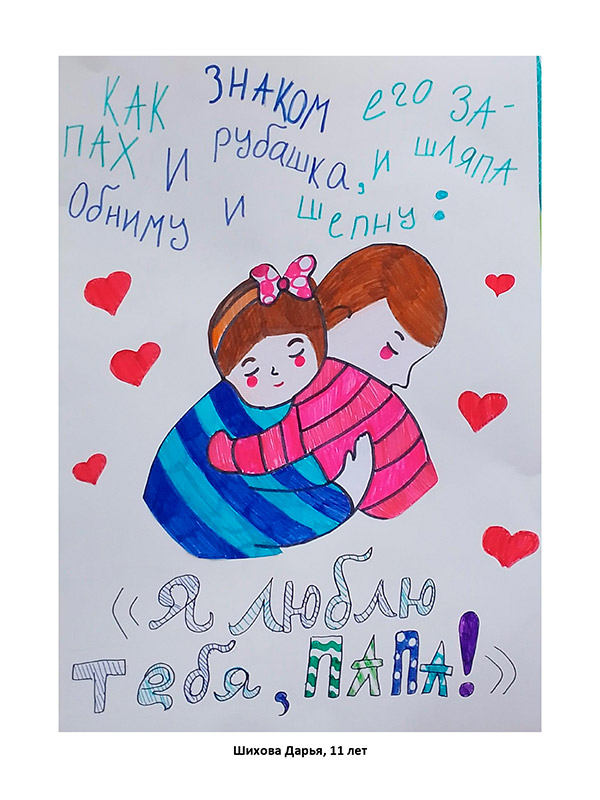 КАК ЗНАКОМ его ЗА-
ПАХ И рубашка, и шляпа
Обниму и шепну:
«Я люблю
тебя, ПАПА!»
Шихова Дарья, 11 лет